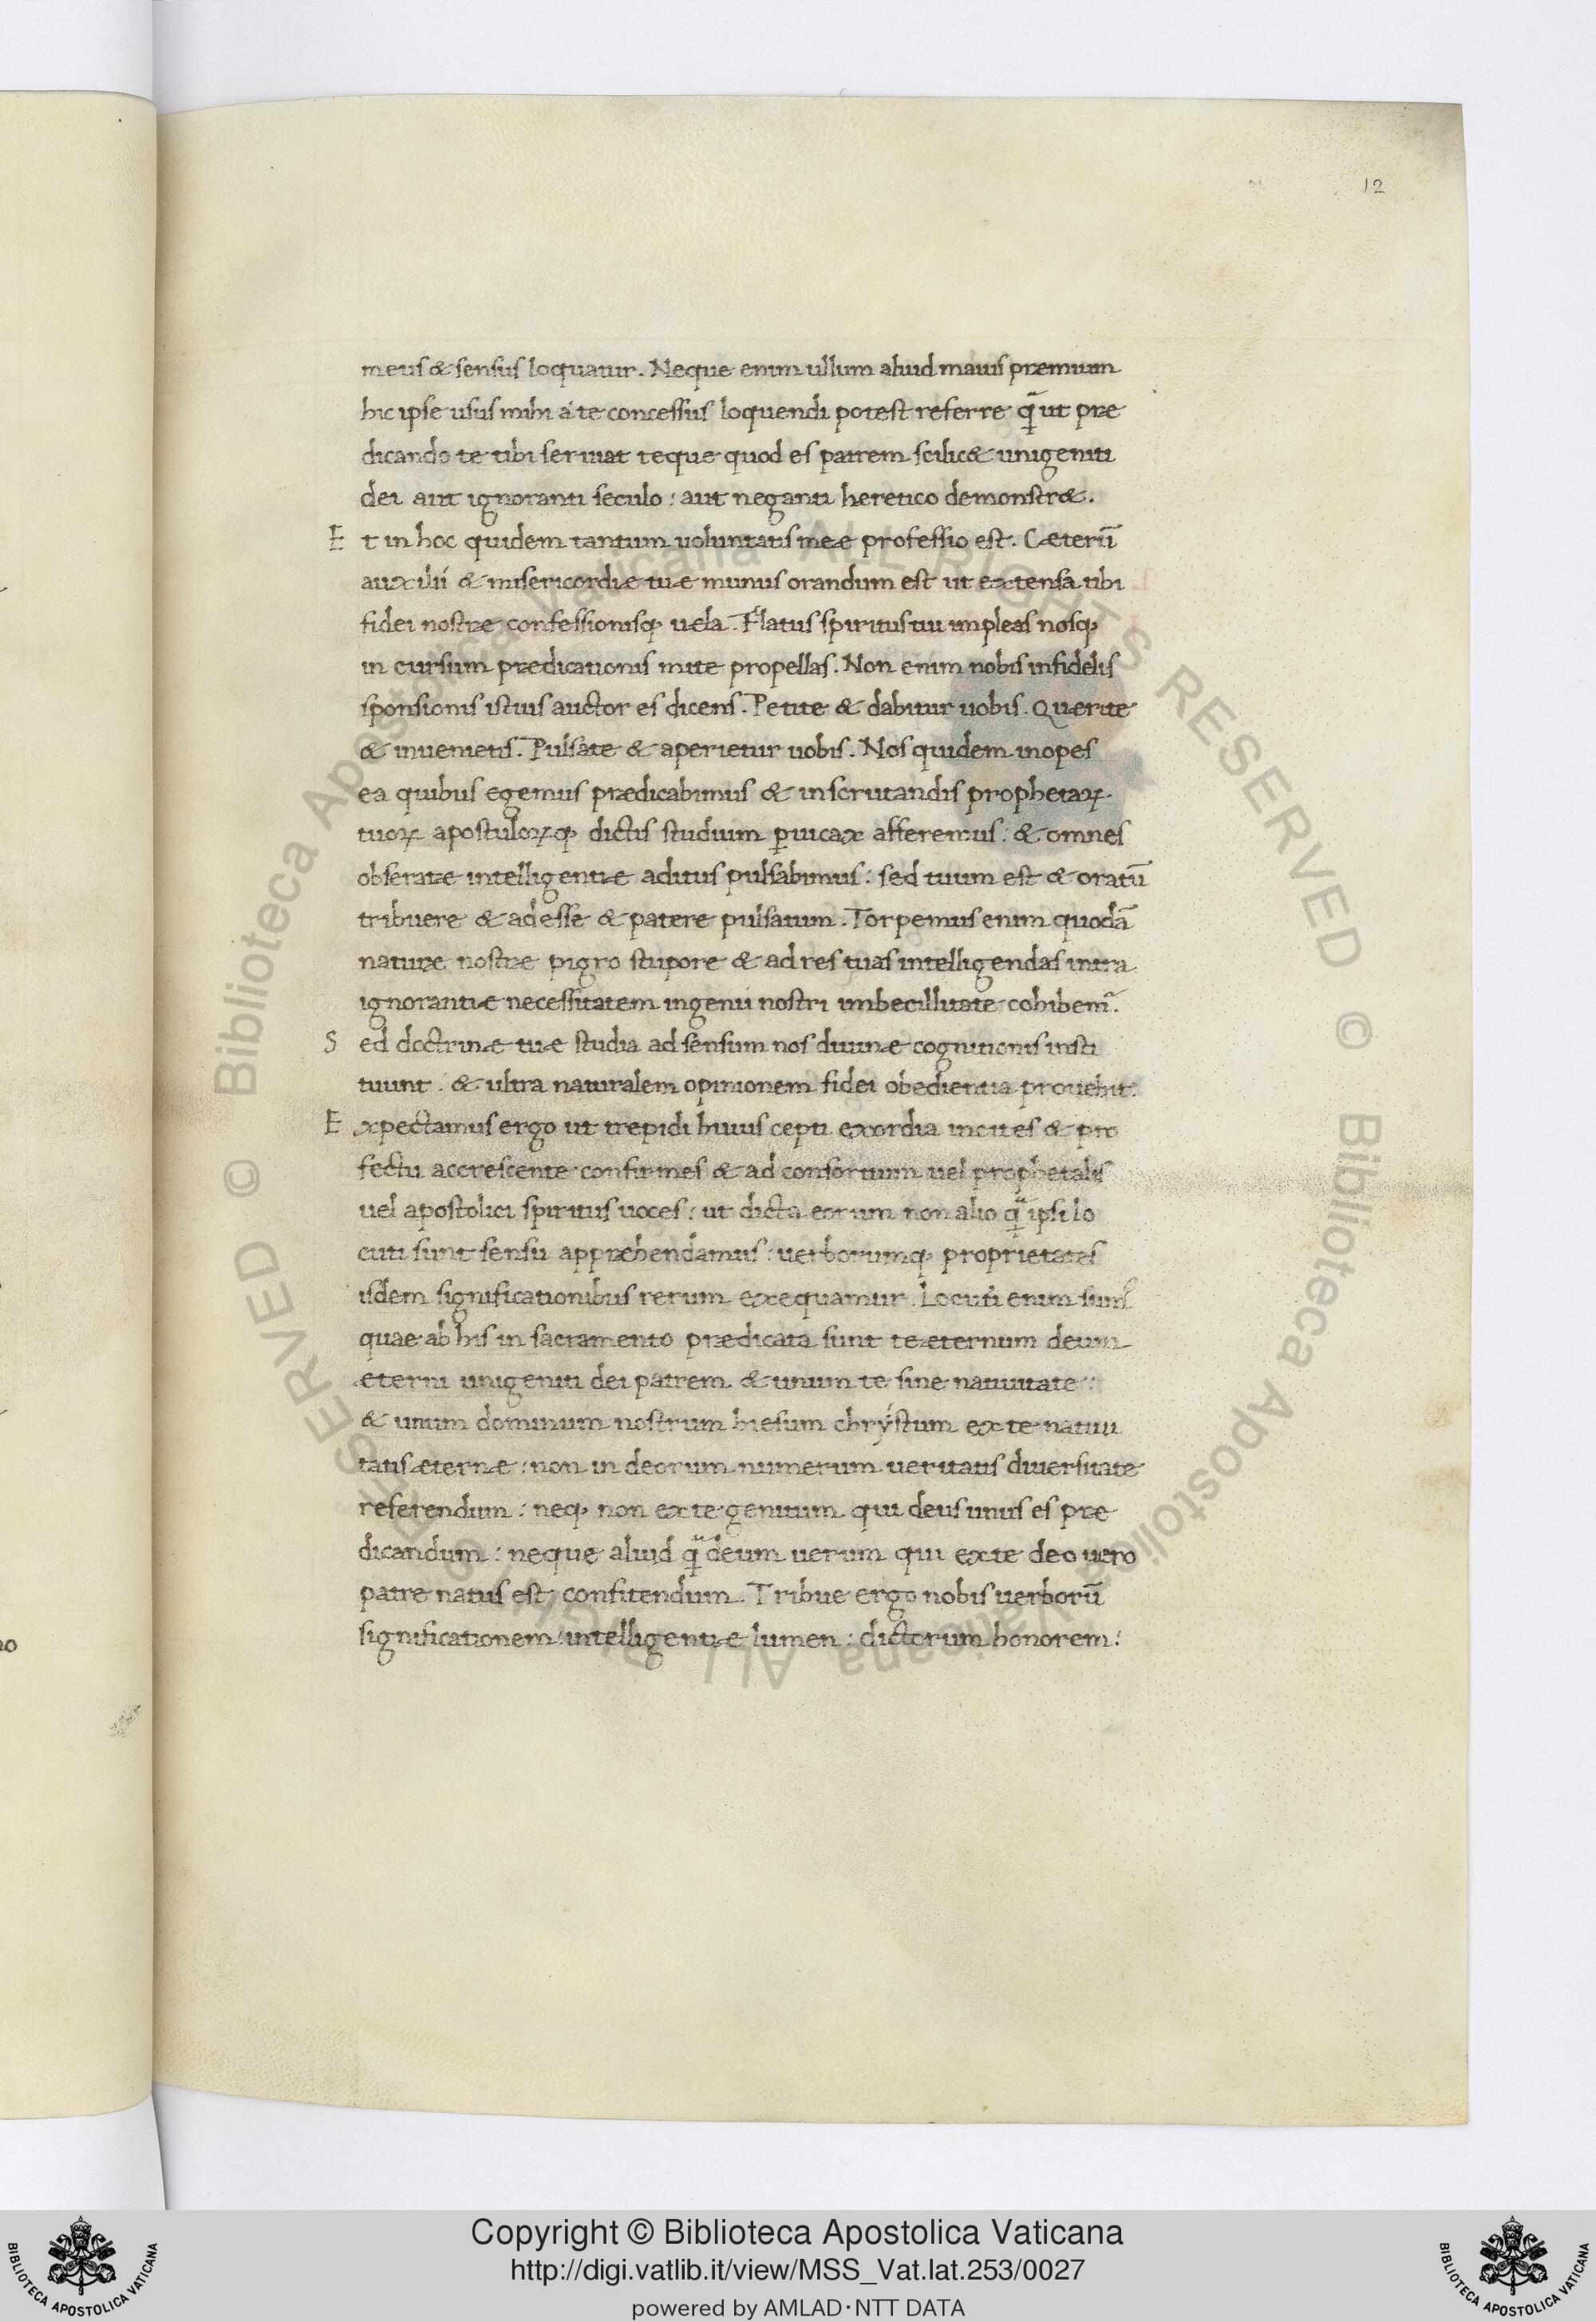 12
meus & sensus loquatur. Neque enim ullum aliud maius præmium
hic ipse usus mihi a te concessus loquendi potest referre quã ut præ
dicando te tibi seruiat teque quod es patrem scilic& unigeniti
dei aut ignoranti seculo: aut neganti heretico demonstr&.
E t in hoc quidem tantum uoluntatis meæ professio est. Cæterũ
auxilii & misericordiæ tuæ munus orandum est ut extensa tibi
fidei nostræ confessionisq; uela. Flatus spiritus tui impleas nosq;
in cursum prædicationis inite propellas. Non enim nobis infidelis
sponsionis istius auctor es dicens. Petite & dabitur uobis. Querite
& inuenietis. Pulsate & aperietur uobis. Nos quidem inopes
ea quibus egemus prædicabimus & in scrutandis prophetaꝝ
tuoꝝ apostuloꝝq; dictis studium ꝑuicax afferemus: & omnes
obseratæ intelligentiæ aditus pulsabimus: sed tuum est & oratũ
tribuere & adesse & patere pulsatum. Torpemus enim quodã
naturæ nostræ pigro stupore & ad res tuas intelligendas intra
ignorantiæ necessitatem ingenii nostri imbecillitate cohibem᷒.
S ed doctrinæ tuæ studia ad sensum nos diuinæ cognitionis insti
tuunt: & ultra naturalem opinionem fidei obedientia prouehit.
E xpectamus ergo ut trepidi huius cepti exordia incites & pro
fectu accrescente confirmes & ad consortium uel prophetalis
uel apostolici spiritus uoces: ut dicta eorum non alio quã ipsi lo
cuti sunt sensu appræhendamus: uerborumq; proprietates
isdem significationibus rerum exequamur. Locuti enim sunt
quae ab his in sacramento prædicata sunt te æternum deum
æterni unigeniti dei patrem & unum te sine natiuitate:
& unum dominum nostrum hiesum chrystum ex te natiui
tatis æternæ: non in deorum numerum ueritatis diuersitate
referendum: neq; non ex te genitum qui deus unus es præ
dicandum: neque aliud quã deum uerum qui ex te deo uero
patre natus est confitendum. Tribue ergo nobis uerborũ
significationem: intelligentiæ lumen: dictorum honorem:
Copyright © Biblioteca Apostolica Vaticana
http://digi.vatlib.it/view/MSS_Vat.lat.253/0027
powered by AMLAD·NTT DATA